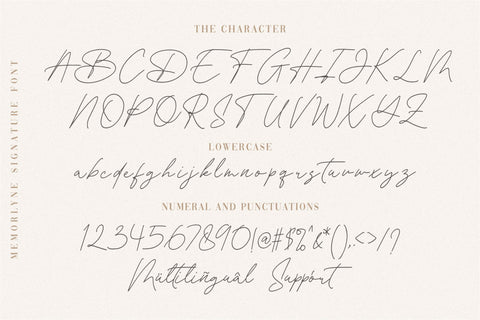 THE CHARACTER
ABCDEFGHIJKLM
NOPQRSTUVWXYZ
LOWERCASE
abcdefghijklmnopqrstuvwxyz
NUMERAL AND PUNCTUATIONS
1234567890!@#$%^&*(),.<>/?
Multilingual Support
MEMORLYNE SIGNATURE FONT